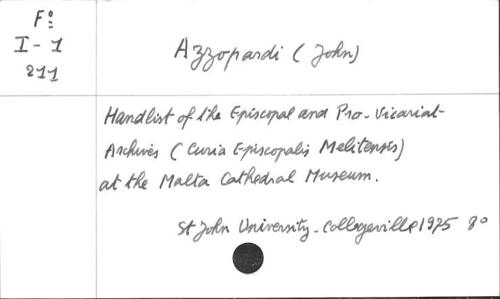 Fº
I-1
211
Azzopardi (John)
Handlist of the Episcopal and Pro-Vicariat-
Archives (Curia Episcopalis Melitensis)
at the Malta Cathedral Museum.
St John University-Collegeville 1975 8º